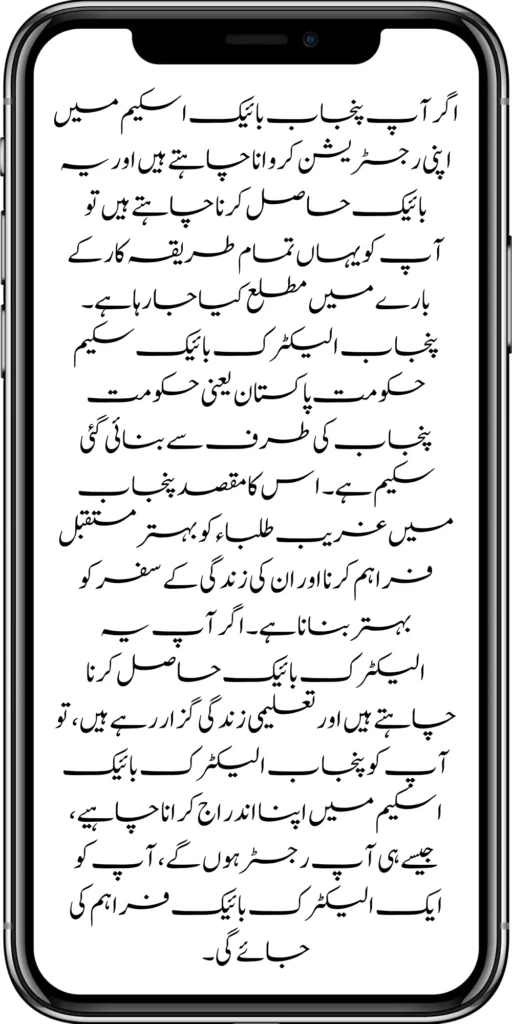 اگر آپ پنجاب بائیک اسکیم میں
اپنی رجسٹریشن کروانا چاہتے ہیں اور یہ
بائیک حاصل کرنا چاہتے ہیں تو
آپ کو یہاں تمام طریقہ کار کے
بارے میں مطلع کیا جا رہا ہے۔
پنجاب الیکٹرک بائیک سکیم
حکومت پاکستان یعنی حکومت
پنجاب کی طرف سے بنائی گئی
سکیم ہے۔ اس کا مقصد پنجاب
میں غریب طلباء کو بہتر مستقبل
فراہم کرنا اور ان کی زندگی کے سفر کو
بہتر بنانا ہے۔ اگر آپ یہ
الیکٹرک بائیک حاصل کرنا
چاہتے ہیں اور تعلیمی زندگی گزار رہے ہیں، تو
آپ کو پنجاب الیکٹرک بائیک
اسکیم میں اپنا اندراج کرانا چاہیے،
جیسے ہی آپ رجسٹر ہوں گے، آپ کو
ایک الیکٹرک بائیک فراہم کی
جائے گی۔